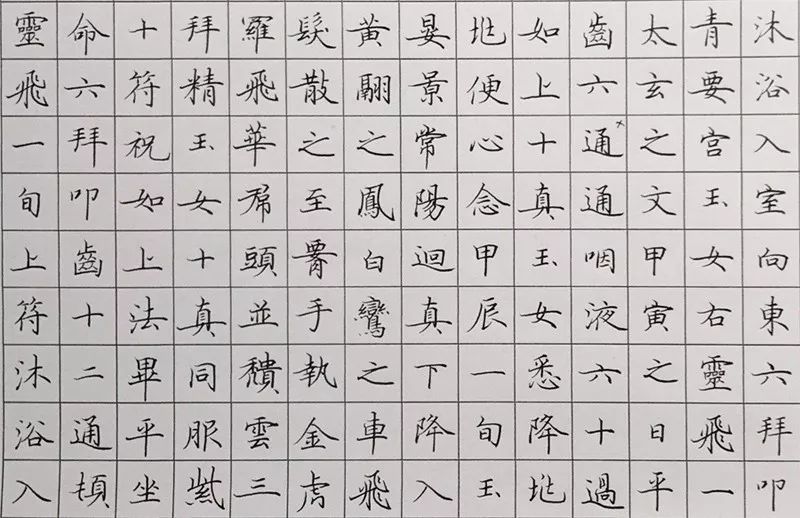 靈飛一旬上符沐浴入
命六拜叩齒十二通頓
十符祝如上法畢平坐
拜精玉女十真同服紫
羅飛華帬頭並頹雲三
髮散之至腰手執金虎
黃翮之鳳白鸞之車飛
晏景常陽迴真下降入
兆便心念甲辰一旬玉
如上十真玉女悉降兆
齒六通通咽液六十過
太玄之文甲寅之日平
青要宮玉女右靈飛一
沐浴入室向東六拜叩